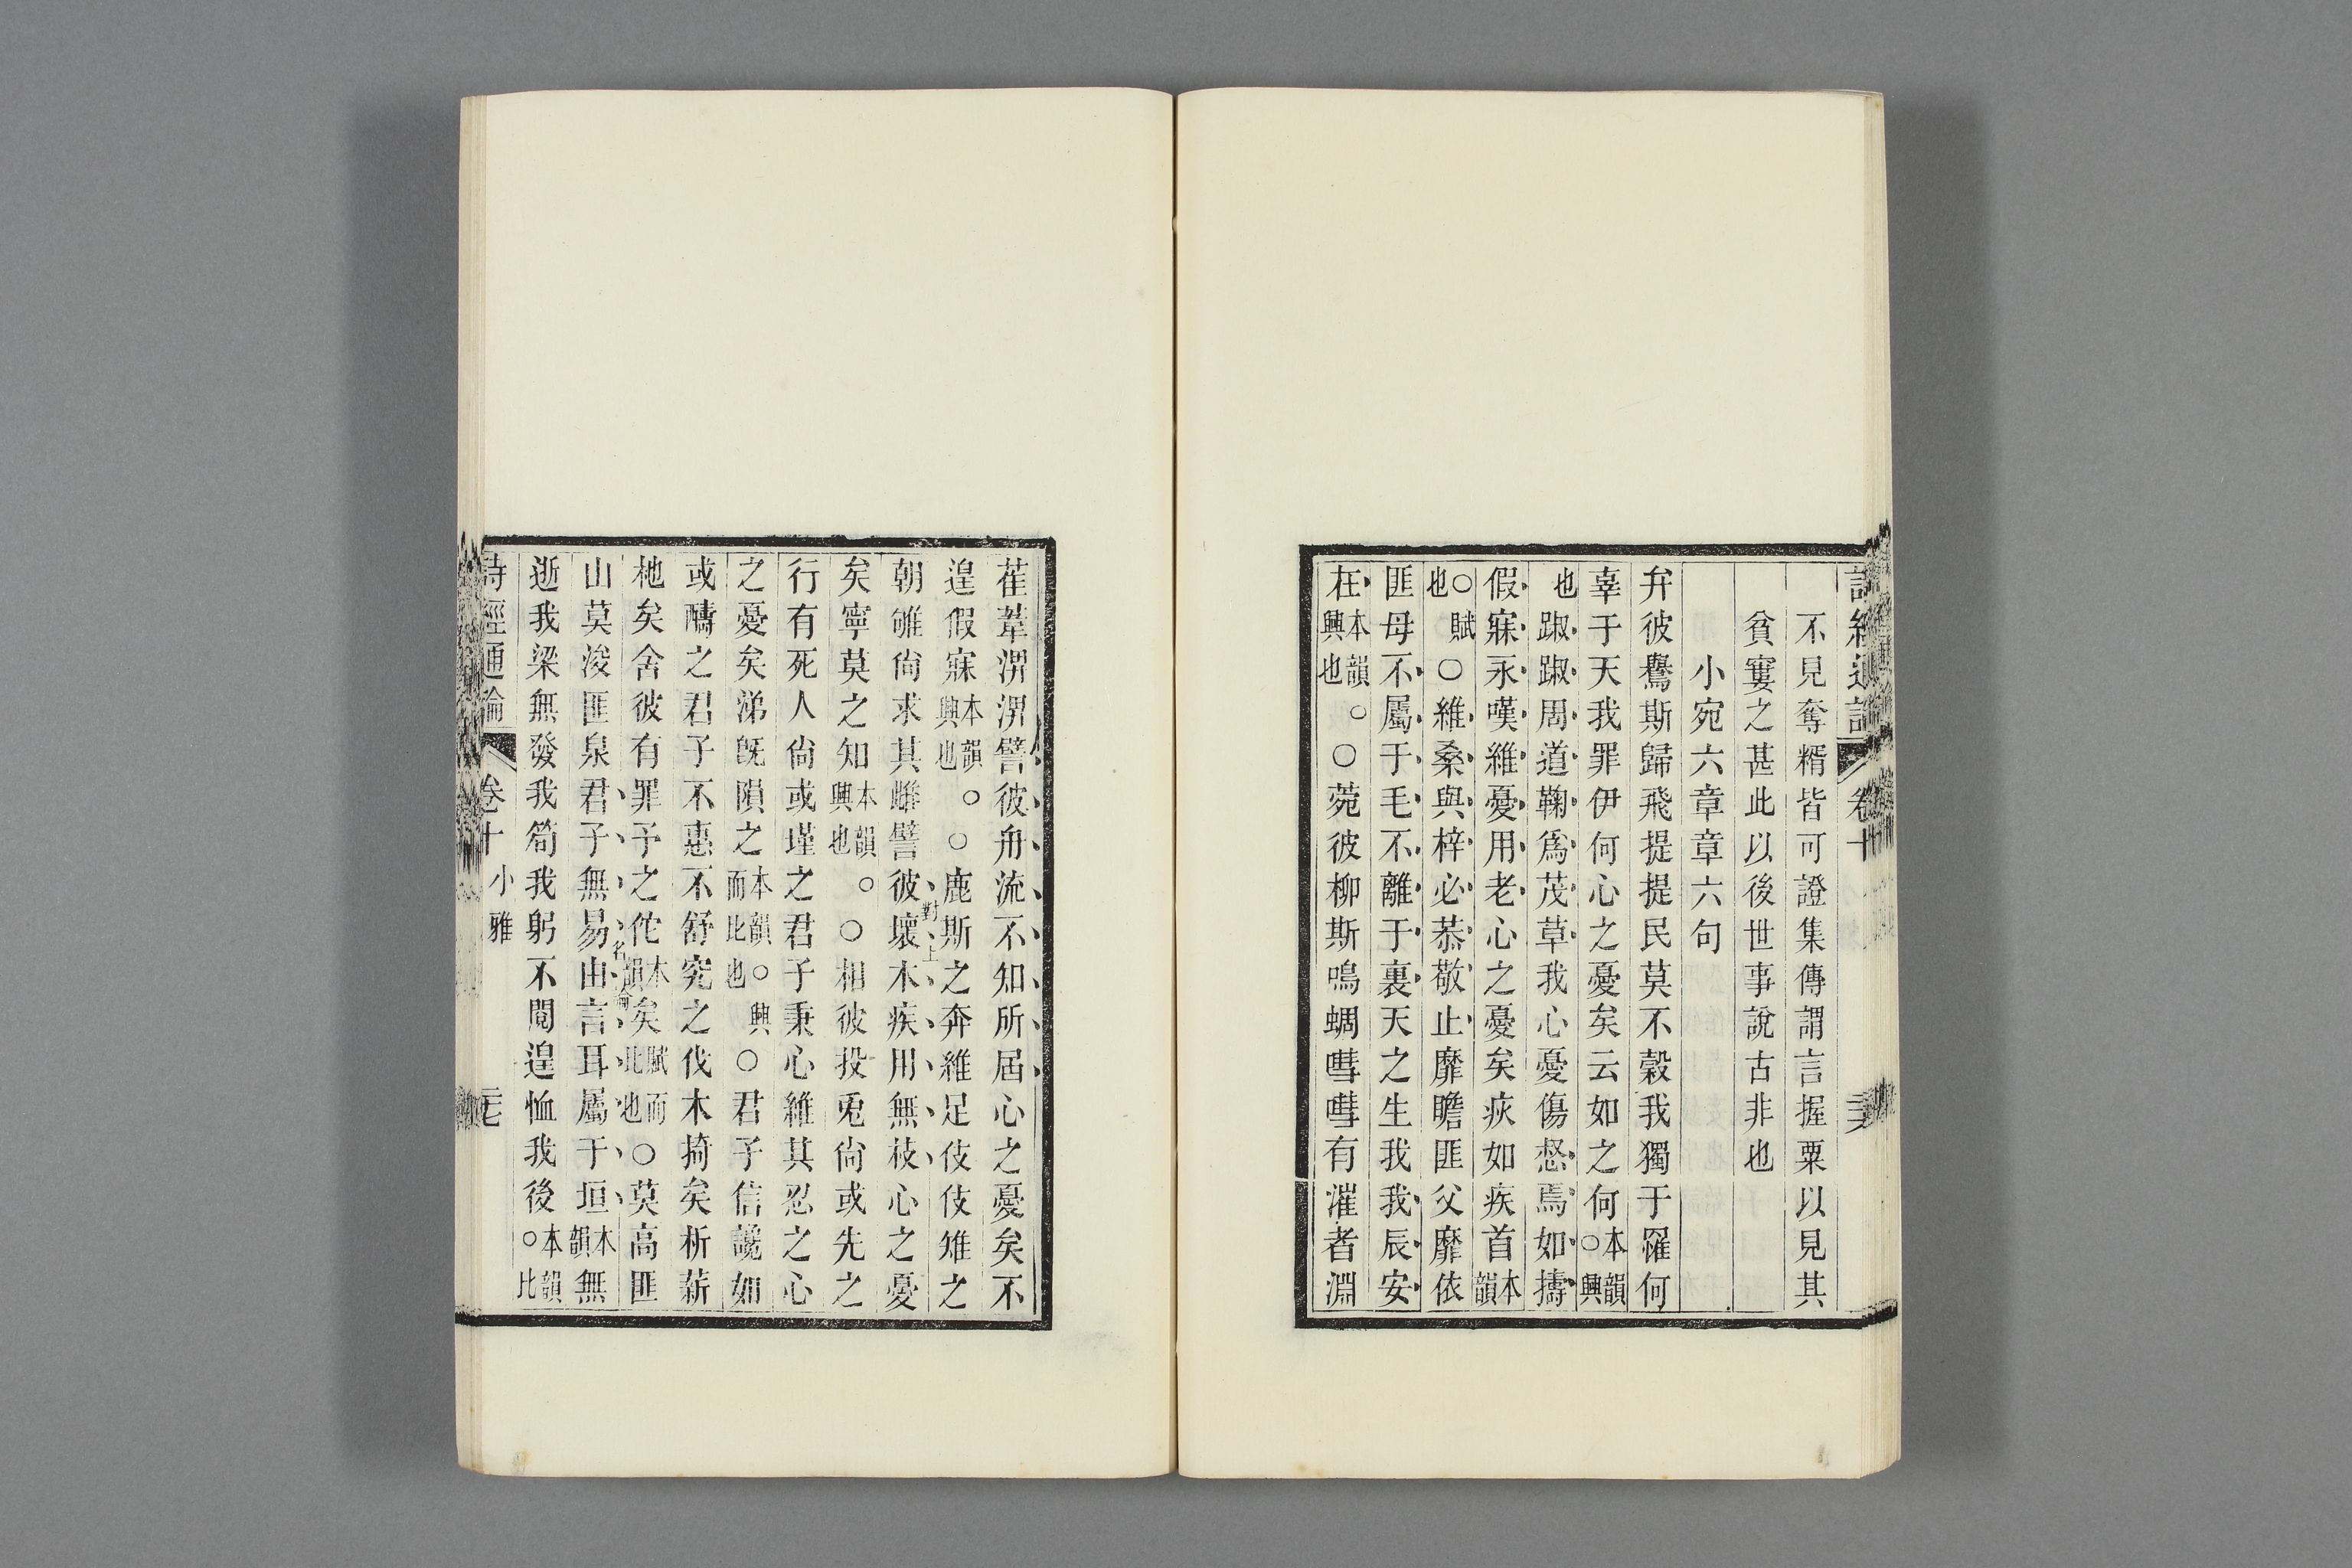 詩經通論 卷十 二六
不見奪糈皆可證集傳謂言握粟以見其
貧窶之甚此以後世事說古非也
小宛六章章六句
弁彼鸒斯歸飛提提民莫不穀我獨于罹何
辜于天我罪伊何心之憂矣云如之何本韻○興
也踧踧周道鞫為茂草我心憂傷惄焉如擣
假寐永嘆維憂用老心之憂矣疢如疾首本韻
○賦也○維桑與梓必恭敬止靡瞻匪父靡依
匪母不屬于毛不離于裏天之生我我辰安
在本韻興也。○菀彼柳斯鳴蜩嘒嘒有漼者淵
萑葦淠淠譬彼舟流不知所屆心之憂矣不
遑假寐本韻興也。○鹿斯之奔維足伎伎雉之
朝雊尙求其雌譬彼壞木疾用無枝心之憂
對上
矣寧莫之知本韻興也。○相彼投兎尙或先之
行有死人尙或墐之君子秉心維其忍之心
之憂矣涕旣隕之本韻○興而比也○君子信讒如
或醻之君子不惠不舒究之伐木掎矣析薪
杝矣舍彼有罪予之佗本韻矣賦而比也○莫高匪
山莫浚匪泉君子無易由言耳屬于垣本韻無
逝我梁無發我笱我躬不閱遑恤我後。本韻比
詩經通論 卷十 小雅 二七